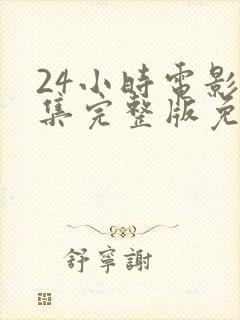 24小時電影
集完整版免
舒寧謝